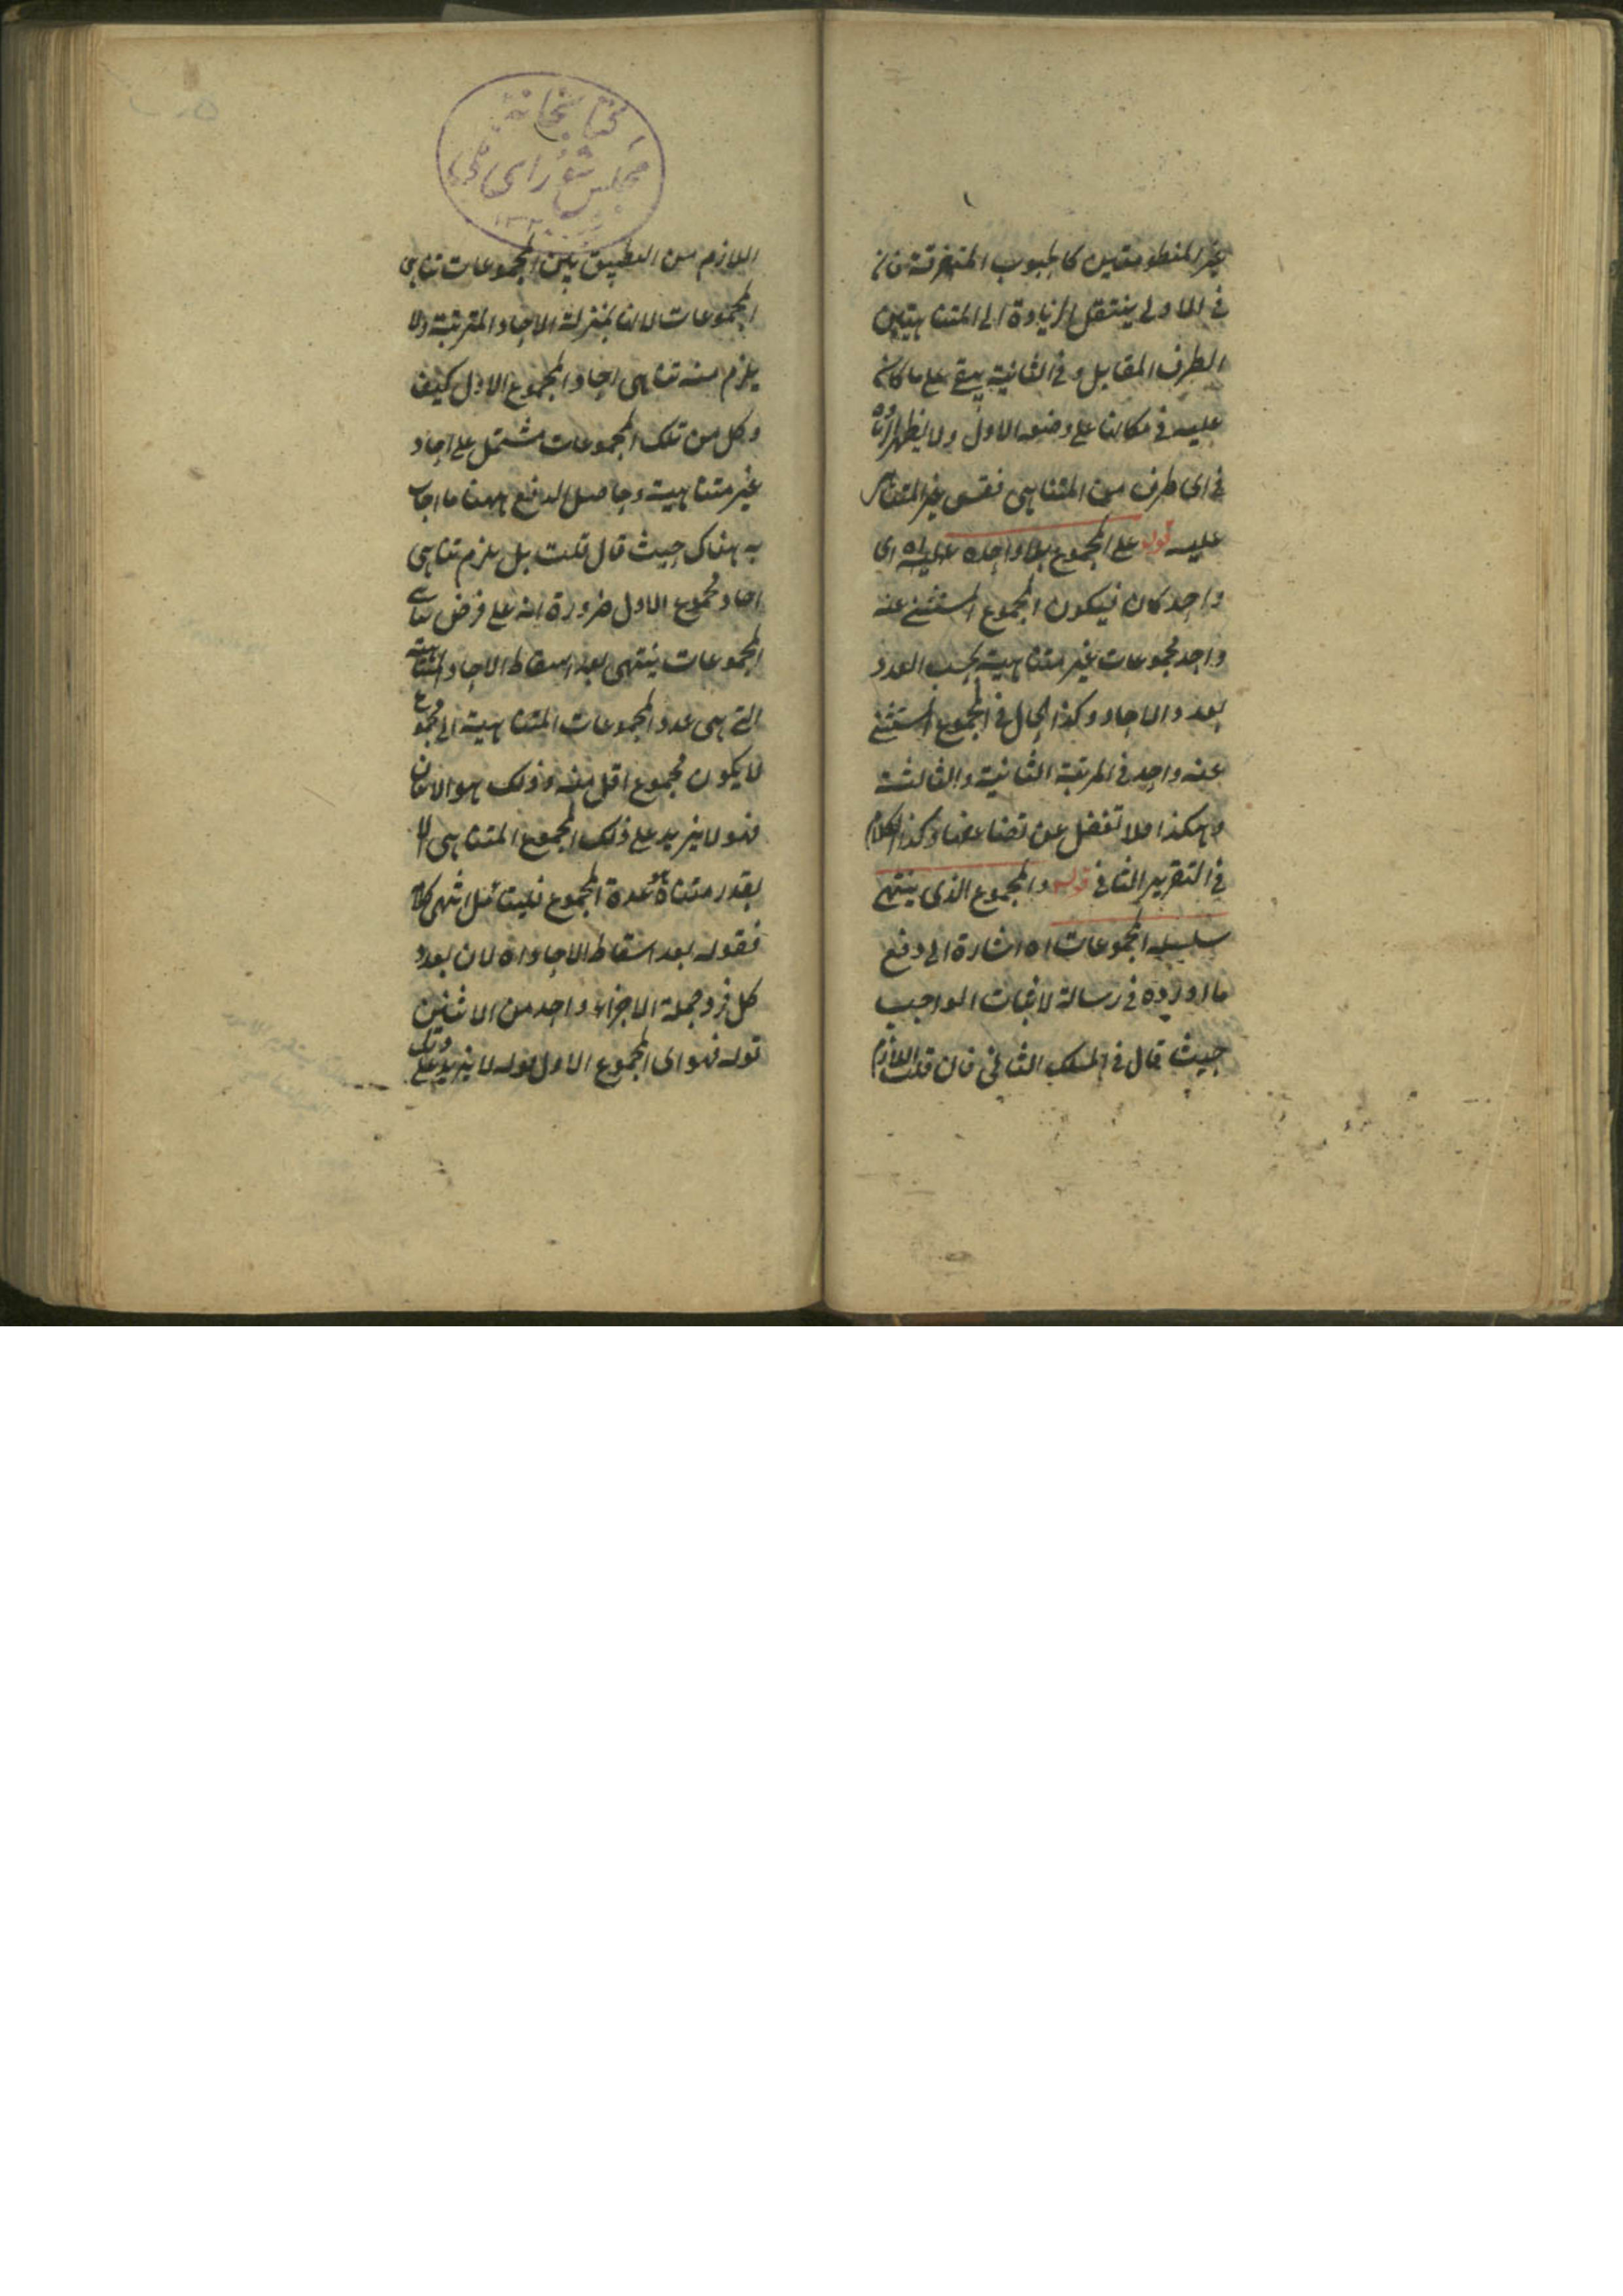 غير المنطومتين كالحبوب المتفرقة فان
في الاولى ينتقل الزيادة الى المتناهيتين
الطرف المقابل وفي الثانية يبقى على ما كان
عليه في مكانها على وضعه الاول ولا يظهر
في اى طرف من المتناهى نقس غير المتناهى
عليه قوله على المجموع بلا واحده اى
واحد كان فيكون المجموع المستثنى عنه
واحد مجموعات غير متناهية بحسب العدد
بعدد الاحاد وكذا الحال في المجموع المستثنى
عنه واحد في المرتبة الثانية والثالثة
وهكذا فلا تغفل عن تضاعفها وكذا الكلام
في التقرير الثاني قوله والمجموع الذى ينتهى
سلسلة المجموعات اه اشارة الى دفع
ما اورده في رسالة لاثبات الواجب
حيث قال في المسلك الثاني فان قلت اللازم
كتابخانه
مجلس شوراى ملى
اللازم من التطبيق بين المجموعات تناهى
المجموعات لانها بمنزلة الاحاد المترتبة ولا
يلزم منه تناهى احاد المجموع الاول كيف
وكل من تلك المجموعات مشتمل على احاد
غير متناهية وحاصل الدفع ههنا ما اجاب
به هناك حيث قال قلت بل يلزم تناهى
احاد مجموع الاول ضرورة انه على فرض تناهى
المجموعات ينتهى بعد اسقاط الاحاد المتناهية
التى هى عدد المجموعات المتناهية الى مجموع
لا يكون مجموع اقل منه وذلك هو الاثنان
فهو لا يزيد على ذلك المجموع المتناهى الا
بقدر متناه هو عدة المجموع فليتامل انتهى كلامه
فقوله بعد اسقاط الاحاد اه لان بعدد
كل فرد جملة الاجزاء واحد من الاثنين
قوله فهو اى المجموع الاول قوله لا يزيد على ذلك